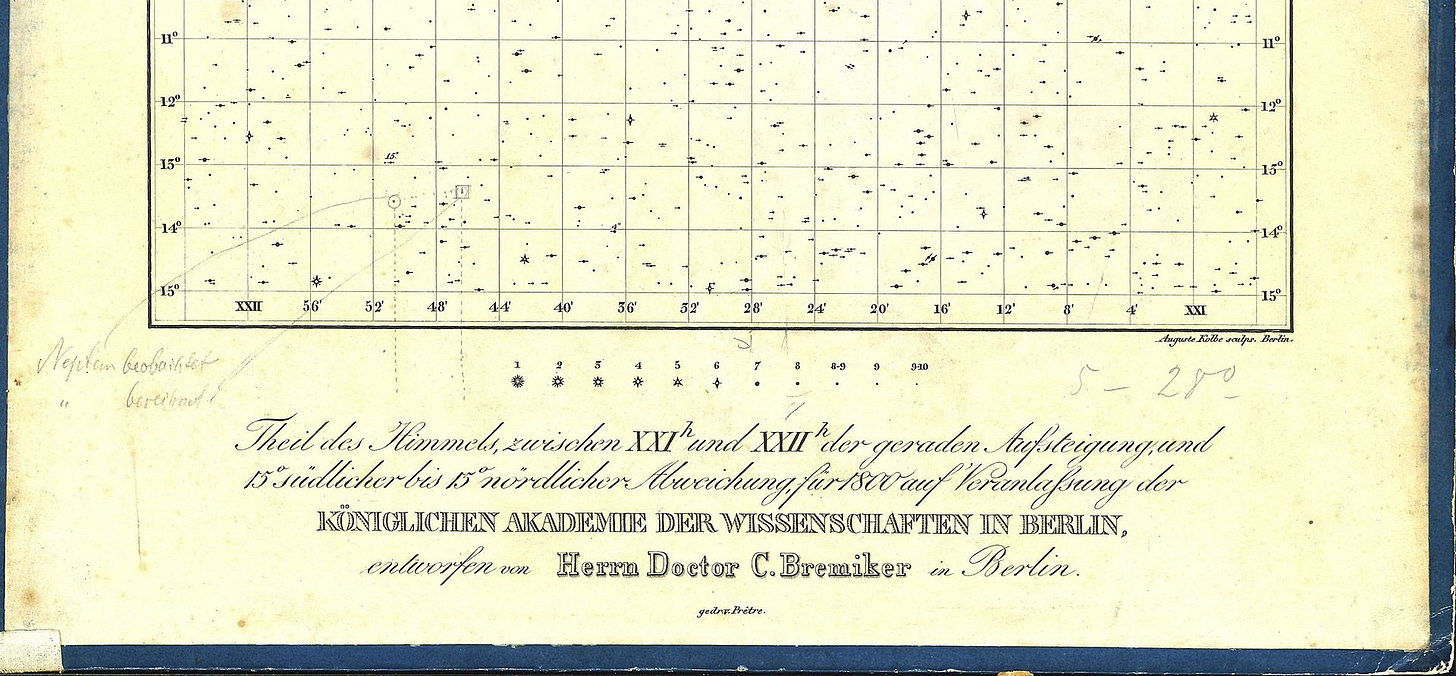 11° 11°
12° 12°
15
13° 13°
4
14° 14°
15° 15°
XXII 56' 52' 48' 44' 40' 36' 32' 28' 24' 20' 16' 12' 8' 4' XXI
Auguste Kolbe sculps. Berlin.
Neptun beobachtet
" berechnet
1 2 3 4 5 6 7 8 8-9 9 9-10
5 - 28°
Theil des Himmels, zwischen XXI<sup>h</sup> und XXII<sup>h</sup> der geraden Aufsteigung, und
15° südlicher bis 15° nördlicher Abweichung, für 1800 auf Veranlaſsung der
KÖNIGLICHEN AKADEMIE DER WISSENSCHAFTEN IN BERLIN,
entworfen von Herrn Doctor C. Bremiker in Berlin.
gedr. v. Prêtre.